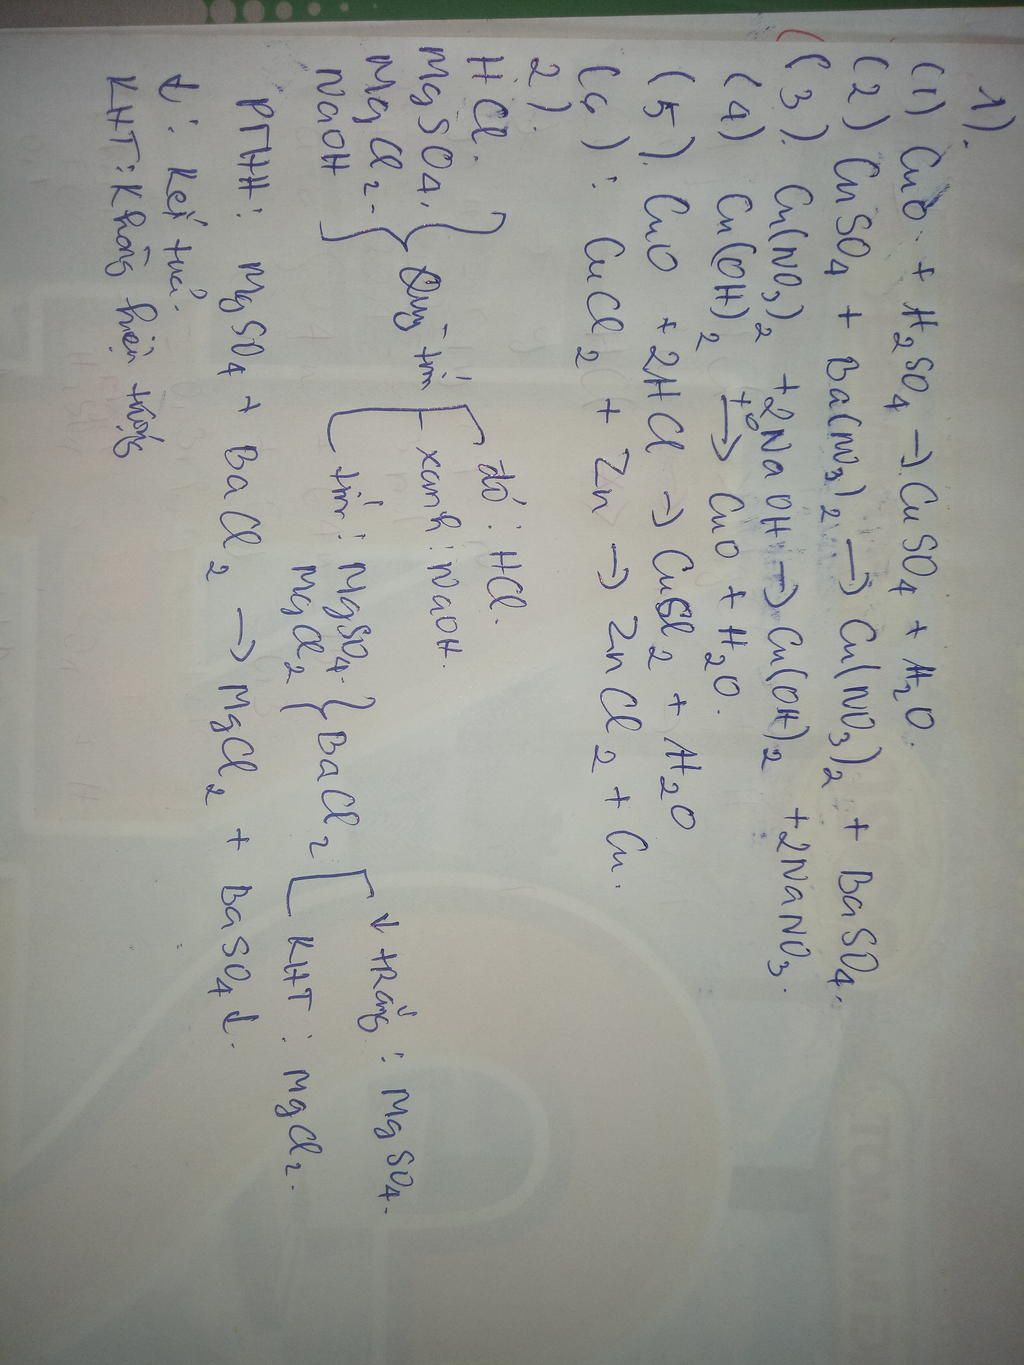 1).
(1) CuO + H2SO4 → CuSO4 + H2O.
(2) CuSO4 + Ba(NO3)2 → Cu(NO3)2 + BaSO4.
(3). Cu(NO3)2 + 2NaOH → Cu(OH)2 + 2NaNO3.
(4) Cu(OH)2 t° → CuO + H2O.
(5). CuO + 2HCl → CuCl2 + H2O
(6): CuCl2 + Zn → ZnCl2 + Cu.
2).
HCl. đỏ: HCl.
MgSO4. } Quỳ tím [ xanh: NaOH. ↓ trắng: MgSO4.
MgCl2. tím: MgSO4. } BaCl2 [
NaOH MgCl2 KHT: MgCl2.
PTHH: MgSO4 + BaCl2 → MgCl2 + BaSO4 ↓.
↓: Kết tủa.
KHT: Không hiện tượng